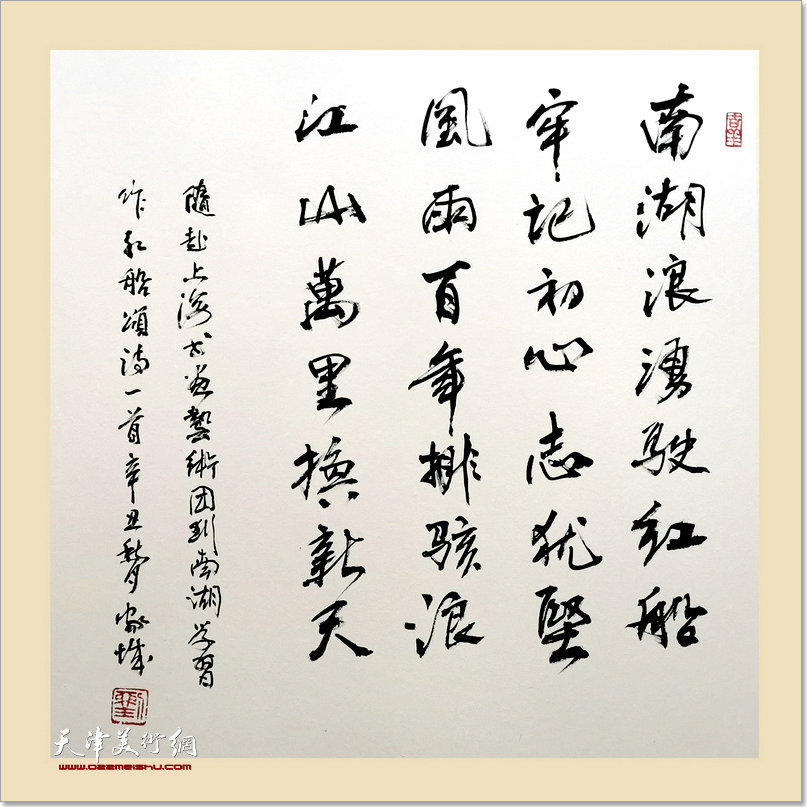 南湖浪湧駛红船
牢记初心志犹堅
風雨百年排骇浪
江山萬里換新天
隨赴上海书画藝術团到南湖学習
作红船頌诗一首辛丑
天津美術網
www.022meishu.com